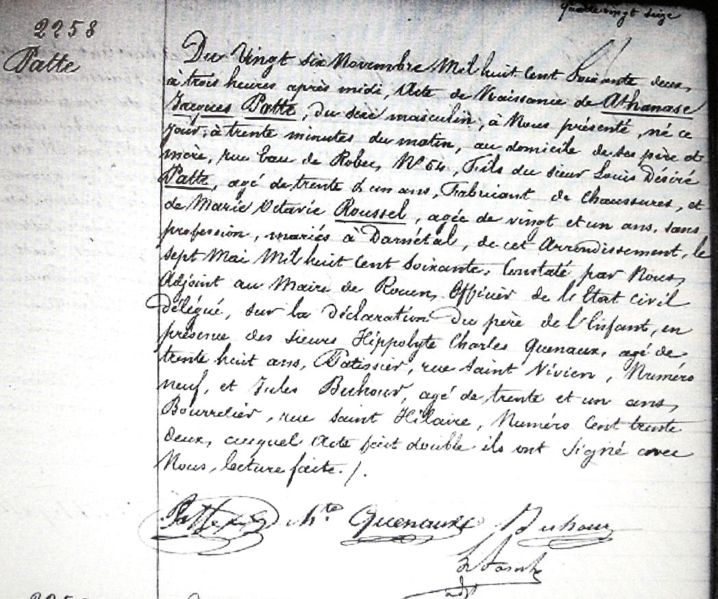 Quatre vingt seize
2258
Patte
Du Vingt six Novembre Mil huit Cent Soixante deux,
à trois heures après midi, Acte de Naissance de Athanase
Jacques Patte, du sexe masculin, à Nous présenté, né ce
jour, à trente minutes du matin, au domicile de ses père et
mère, rue Eau de Robec, No 54, Fils du sieur Louis Désiré
Patte, agé de trente & un ans, Fabricant de Chaussures, et
de Marie Octavie Roussel, agée de vingt et un ans, sans
profession, mariés à Darnétal, de cet Arrondissement, le
sept Mai Mil huit Cent Soixante. Constaté par Nous,
Adjoint au Maire de Rouen, Officier de l'Etat civil
délégué, sur la déclaration du père de l'Enfant, en
présence des sieurs Hippolyte Charles Quenaux, agé de
trente huit ans, Patissier, rue Saint Vivien, Numéro
neuf, et Jules Buhour, agé de trente et un ans,
Bourrelier, rue Saint Hilaire, Numéro Cent trente
deux, auxquel Acte fait double ils ont signé avec
Nous, lecture faite. /.
Patte hte Quenaux Buhour
adjt